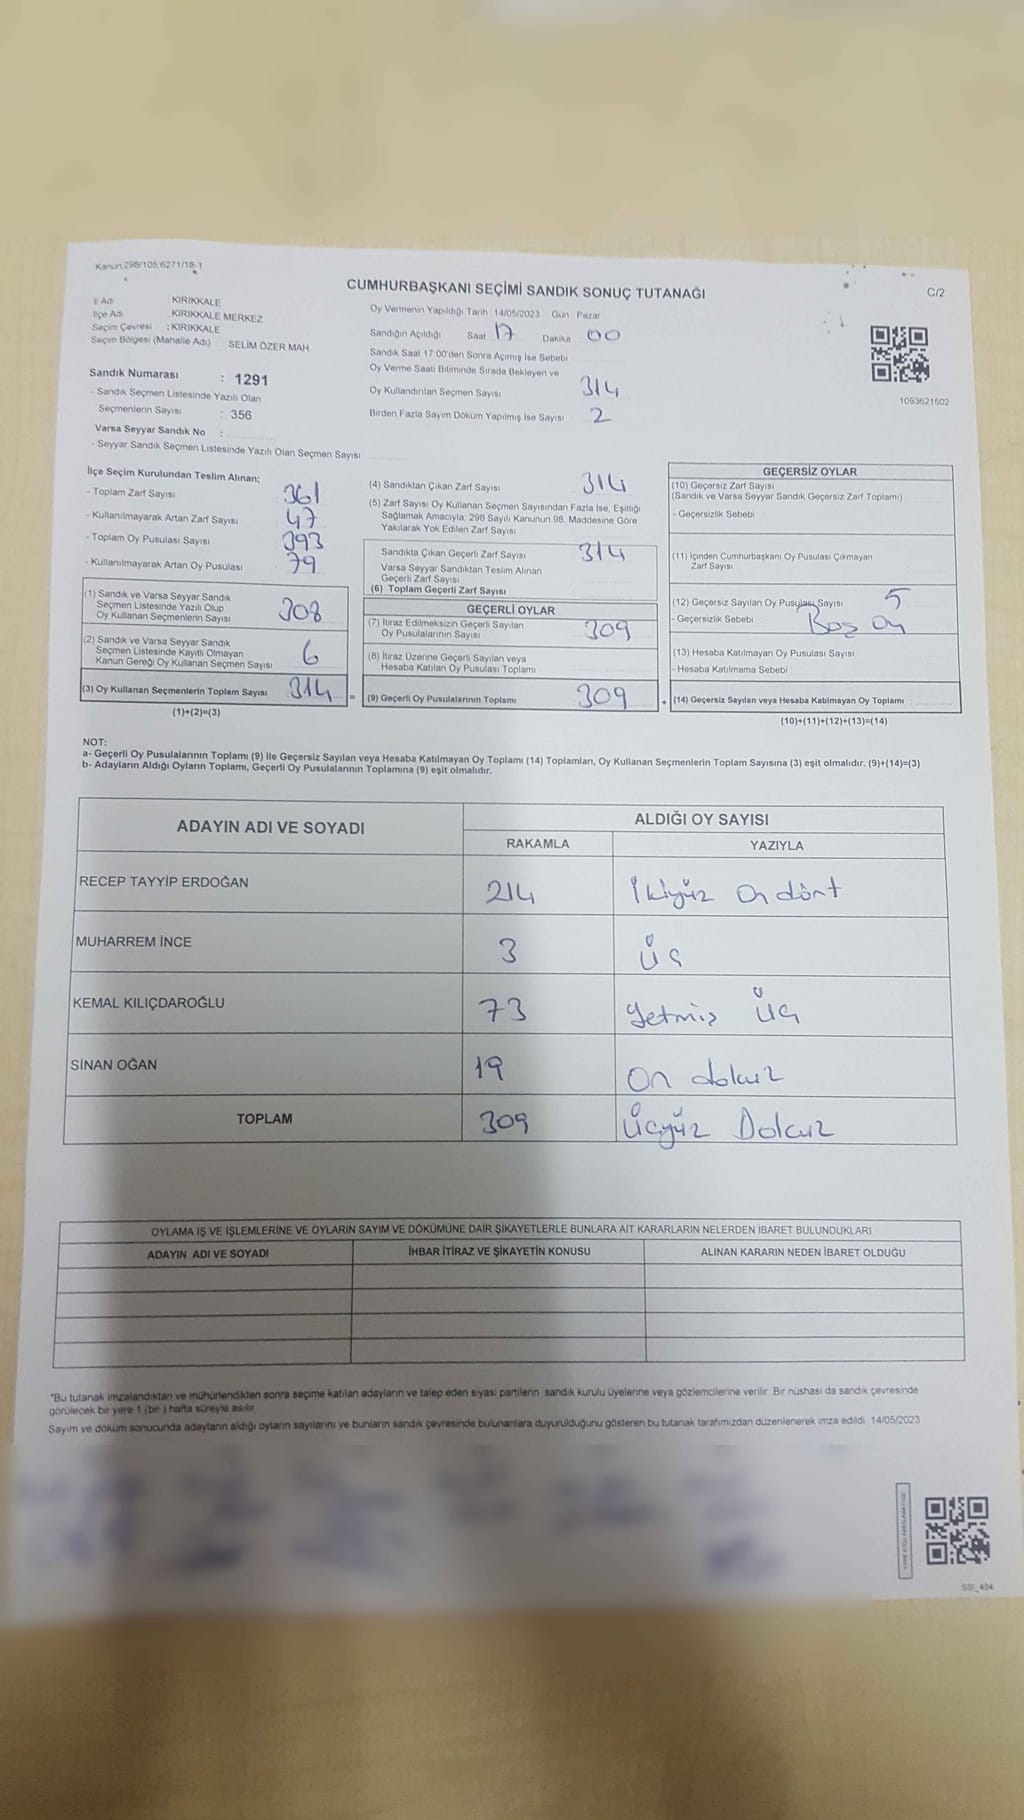 Kanun 298/105.6271/18-1
CUMHURBAŞKANI SEÇİMİ SANDIK SONUÇ TUTANAĞI
C/2
İl Adı : KIRIKKALE
İlçe Adı : KIRIKKALE MERKEZ
Seçim Çevresi : KIRIKKALE
Seçim Bölgesi (Mahalle Adı) SELİM ÖZER MAH.
Sandık Numarası : 1291
- Sandık Seçmen Listesinde Yazılı Olan
Seçmenlerin Sayısı : 356
Varsa Seyyar Sandık No :
- Seyyar Sandık Seçmen Listesinde Yazılı Olan Seçmen Sayısı
Oy Vermenin Yapıldığı Tarih :14/05/2023 Gün Pazar
Sandığın Açıldığı Saat 17 Dakika 00
Sandık Saat 17:00'den Sonra Açımış İse Sebebi
Oy Verme Saati Bitiminde Sırada Bekleyen ve
Oy Kullandırılan Seçmen Sayısı 314
Birden Fazla Sayım Döküm Yapılmış ise Sayısı 2
1093621502
İlçe Seçim Kurulundan Teslim Alınan;
- Toplam Zarf Sayısı 361
- Kullanılmayarak Artan Zarf Sayısı 47
- Toplam Oy Pusulası Sayısı 393
- Kullanılmayarak Artan Oy Pusulası 79
(1) Sandık ve Varsa Seyyar Sandık
Seçmen Listesinde Yazılı Olup
Oy Kullanan Seçmenlerin Sayısı 308
(2) Sandık ve Varsa Seyyar Sandık
Seçmen Listesinde Kayıtlı Olmayan
Kanun Gereği Oy Kullanan Seçmen Sayısı 6
(3) Oy Kullanan Seçmenlerin Toplam Sayısı 314 =
(1)+(2)=(3)
(4) Sandıktan Çıkan Zarf Sayısı 314
(5) Zarf Sayısı Oy Kullanan Seçmen Sayısından Fazla İse, Eşitliği
Sağlamak Amacıyla, 298 Sayılı Kanunun 98. Maddesine Göre
Yakılarak Yok Edilen Zarf Sayısı
Sandıkta Çıkan Geçerli Zarf Sayısı 314
Varsa Seyyar Sandıktan Teslim Alınan
Geçerli Zarf Sayısı
(6) Toplam Geçerli Zarf Sayısı
GEÇERLİ OYLAR
(7) İtiraz Edilmeksizin Geçerli Sayılan
Oy Pusulalarının Sayısı 309
(8) İtiraz Üzerine Geçerli Sayılan veya
Hesaba Katılan Oy Pusulası Toplamı
(9) Geçerli Oy Pusulalarının Toplamı 309 +
GEÇERSİZ OYLAR
(10) Geçersiz Zarf Sayısı
(Sandık ve Varsa Seyyar Sandık Geçersiz Zarf Toplamı)
- Geçersizlik Sebebi
(11) İçinden Cumhurbaşkanı Oy Pusulası Çıkmayan
Zarf Sayısı
(12) Geçersiz Sayılan Oy Pusulası Sayısı 5
- Geçersizlik Sebebi : Boş oy
(13) Hesaba Katılmayan Oy Pusulası Sayısı
- Hesaba Katılmama Sebebi
(14) Geçersiz Sayılan veya Hesaba Katılmayan Oy Toplamı
(10)+(11)+(12)+(13)=(14)
NOT:
a- Geçerli Oy Pusulalarının Toplamı (9) ile Geçersiz Sayılan veya Hesaba Katılmayan Oy Toplamı (14) Toplamları, Oy Kullanan Seçmenlerin Toplam Sayısına (3) eşit olmalıdır. (9)+(14)=(3)
b- Adayların Aldığı Oyların Toplamı, Geçerli Oy Pusulalarının Toplamına (9) eşit olmalıdır.
ADAYIN ADI VE SOYADI ALDIĞI OY SAYISI
RAKAMLA YAZIYLA
RECEP TAYYİP ERDOĞAN 214 İkiyüz on dört
MUHARREM İNCE 3 üç
KEMAL KILIÇDAROĞLU 73 yetmiş üç
SİNAN OĞAN 19 on dokuz
TOPLAM 309 Üçyüz Dokuz
OYLAMA İŞ VE İŞLEMLERİNE VE OYLARIN SAYIM VE DÖKÜMÜNE DAİR ŞİKAYETLERLE BUNLARA AİT KARARLARIN NELERDEN İBARET BULUNDUKLARI
ADAYIN ADI VE SOYADI İHBAR İTİRAZ VE ŞİKAYETİN KONUSU ALINAN KARARIN NEDEN İBARET OLDUĞU
"Bu tutanak imzalandıktan ve mühürlendikten sonra seçime katılan adayların ve talep eden siyasi partilerin sandık kurulu üyelerine veya gözlemcilerine verilir. Bir nüshası da sandık çevresinde
görülecek bir yere 1 (bir) hafta süreyle asılır.
Sayım ve döküm sonucunda adayların aldığı oyların sayılarını ve bunların sandık çevresinde bulunanlara duyurulduğunu gösteren bu tutanak tarafımızdan düzenlenerek imza edildi. 14/05/2023
SSI_404